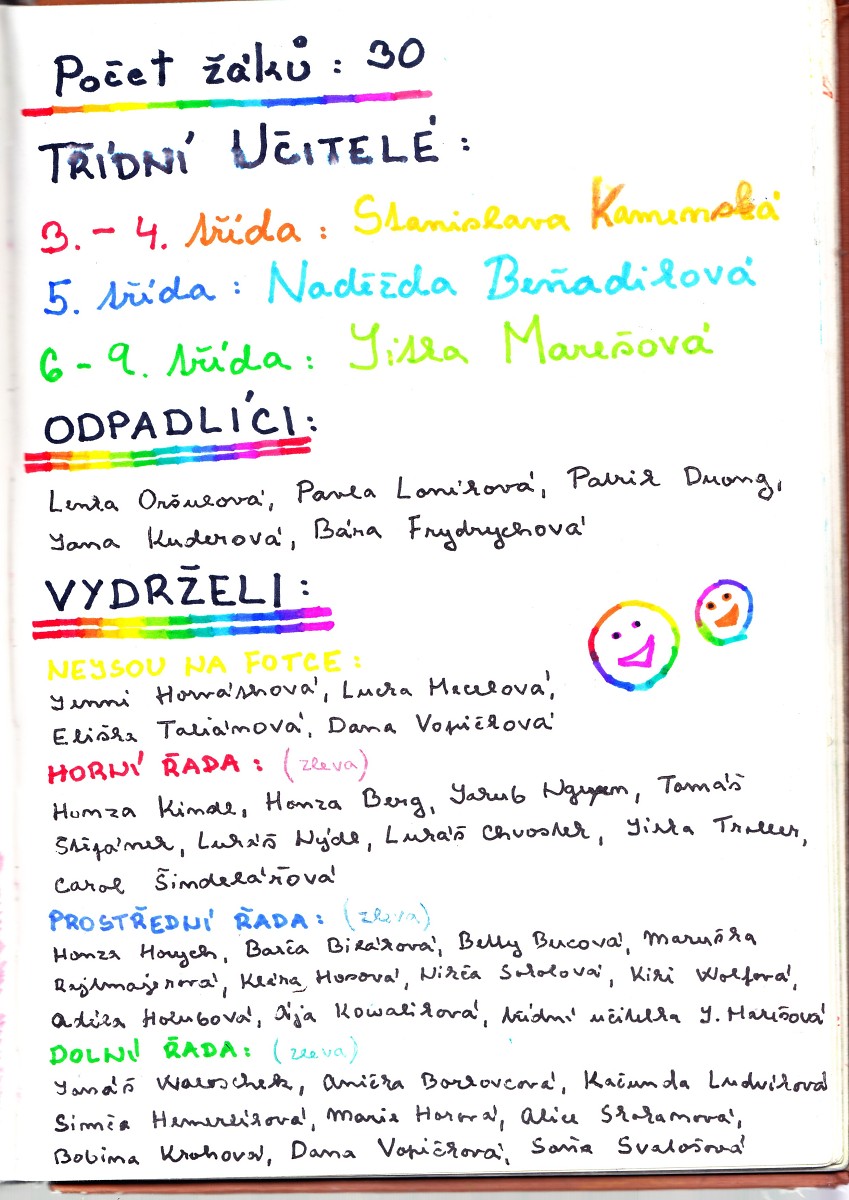 Počet žáků: 30
TŘÍDNÍ UČITELÉ:
3. - 4. třída: Stanislava Kamenská
5. třída: Naděžda Beňadiková
6 - 9. třída: Jitka Marešová
ODPADLÍCI:
Lenka Oršulová, Pavla Loníková, Patrik Duong,
Jana Kuderová, Bára Frydrychová
VYDRŽELI:
NEJSOU NA FOTCE:
Jenni Horváthová, Lucka Macelová,
Eliška Taliánová, Dana Vopičková
HORNÍ ŘADA: (zleva)
Honza Kindl, Honza Berg, Jakub Nguyen, Tomáš
Štěpánek, Lukáš Nýdl, Lukáš Chvostek, Jitka Troller,
Carol Šindelářová
PROSTŘEDNÍ ŘADA: (zleva)
Honza Horych, Barča Bikárová, Betty Bucová, Maruška
Rajtmajerová, Klára Husová, Nikča Sokolová, Kiki Wolfová,
Adéla Holubová, Ája Kowaliková, třídní učitelka J. Marešová
DOLNÍ ŘADA: (zleva)
Tomáš Waloschek, Anička Borkovcová, Kačunda Ludvíková
Simča Hemerlíková, Marie Horová, Alice Skokanová,
Bobina Krohová, Dana Vopičková, Soňa Svatošová